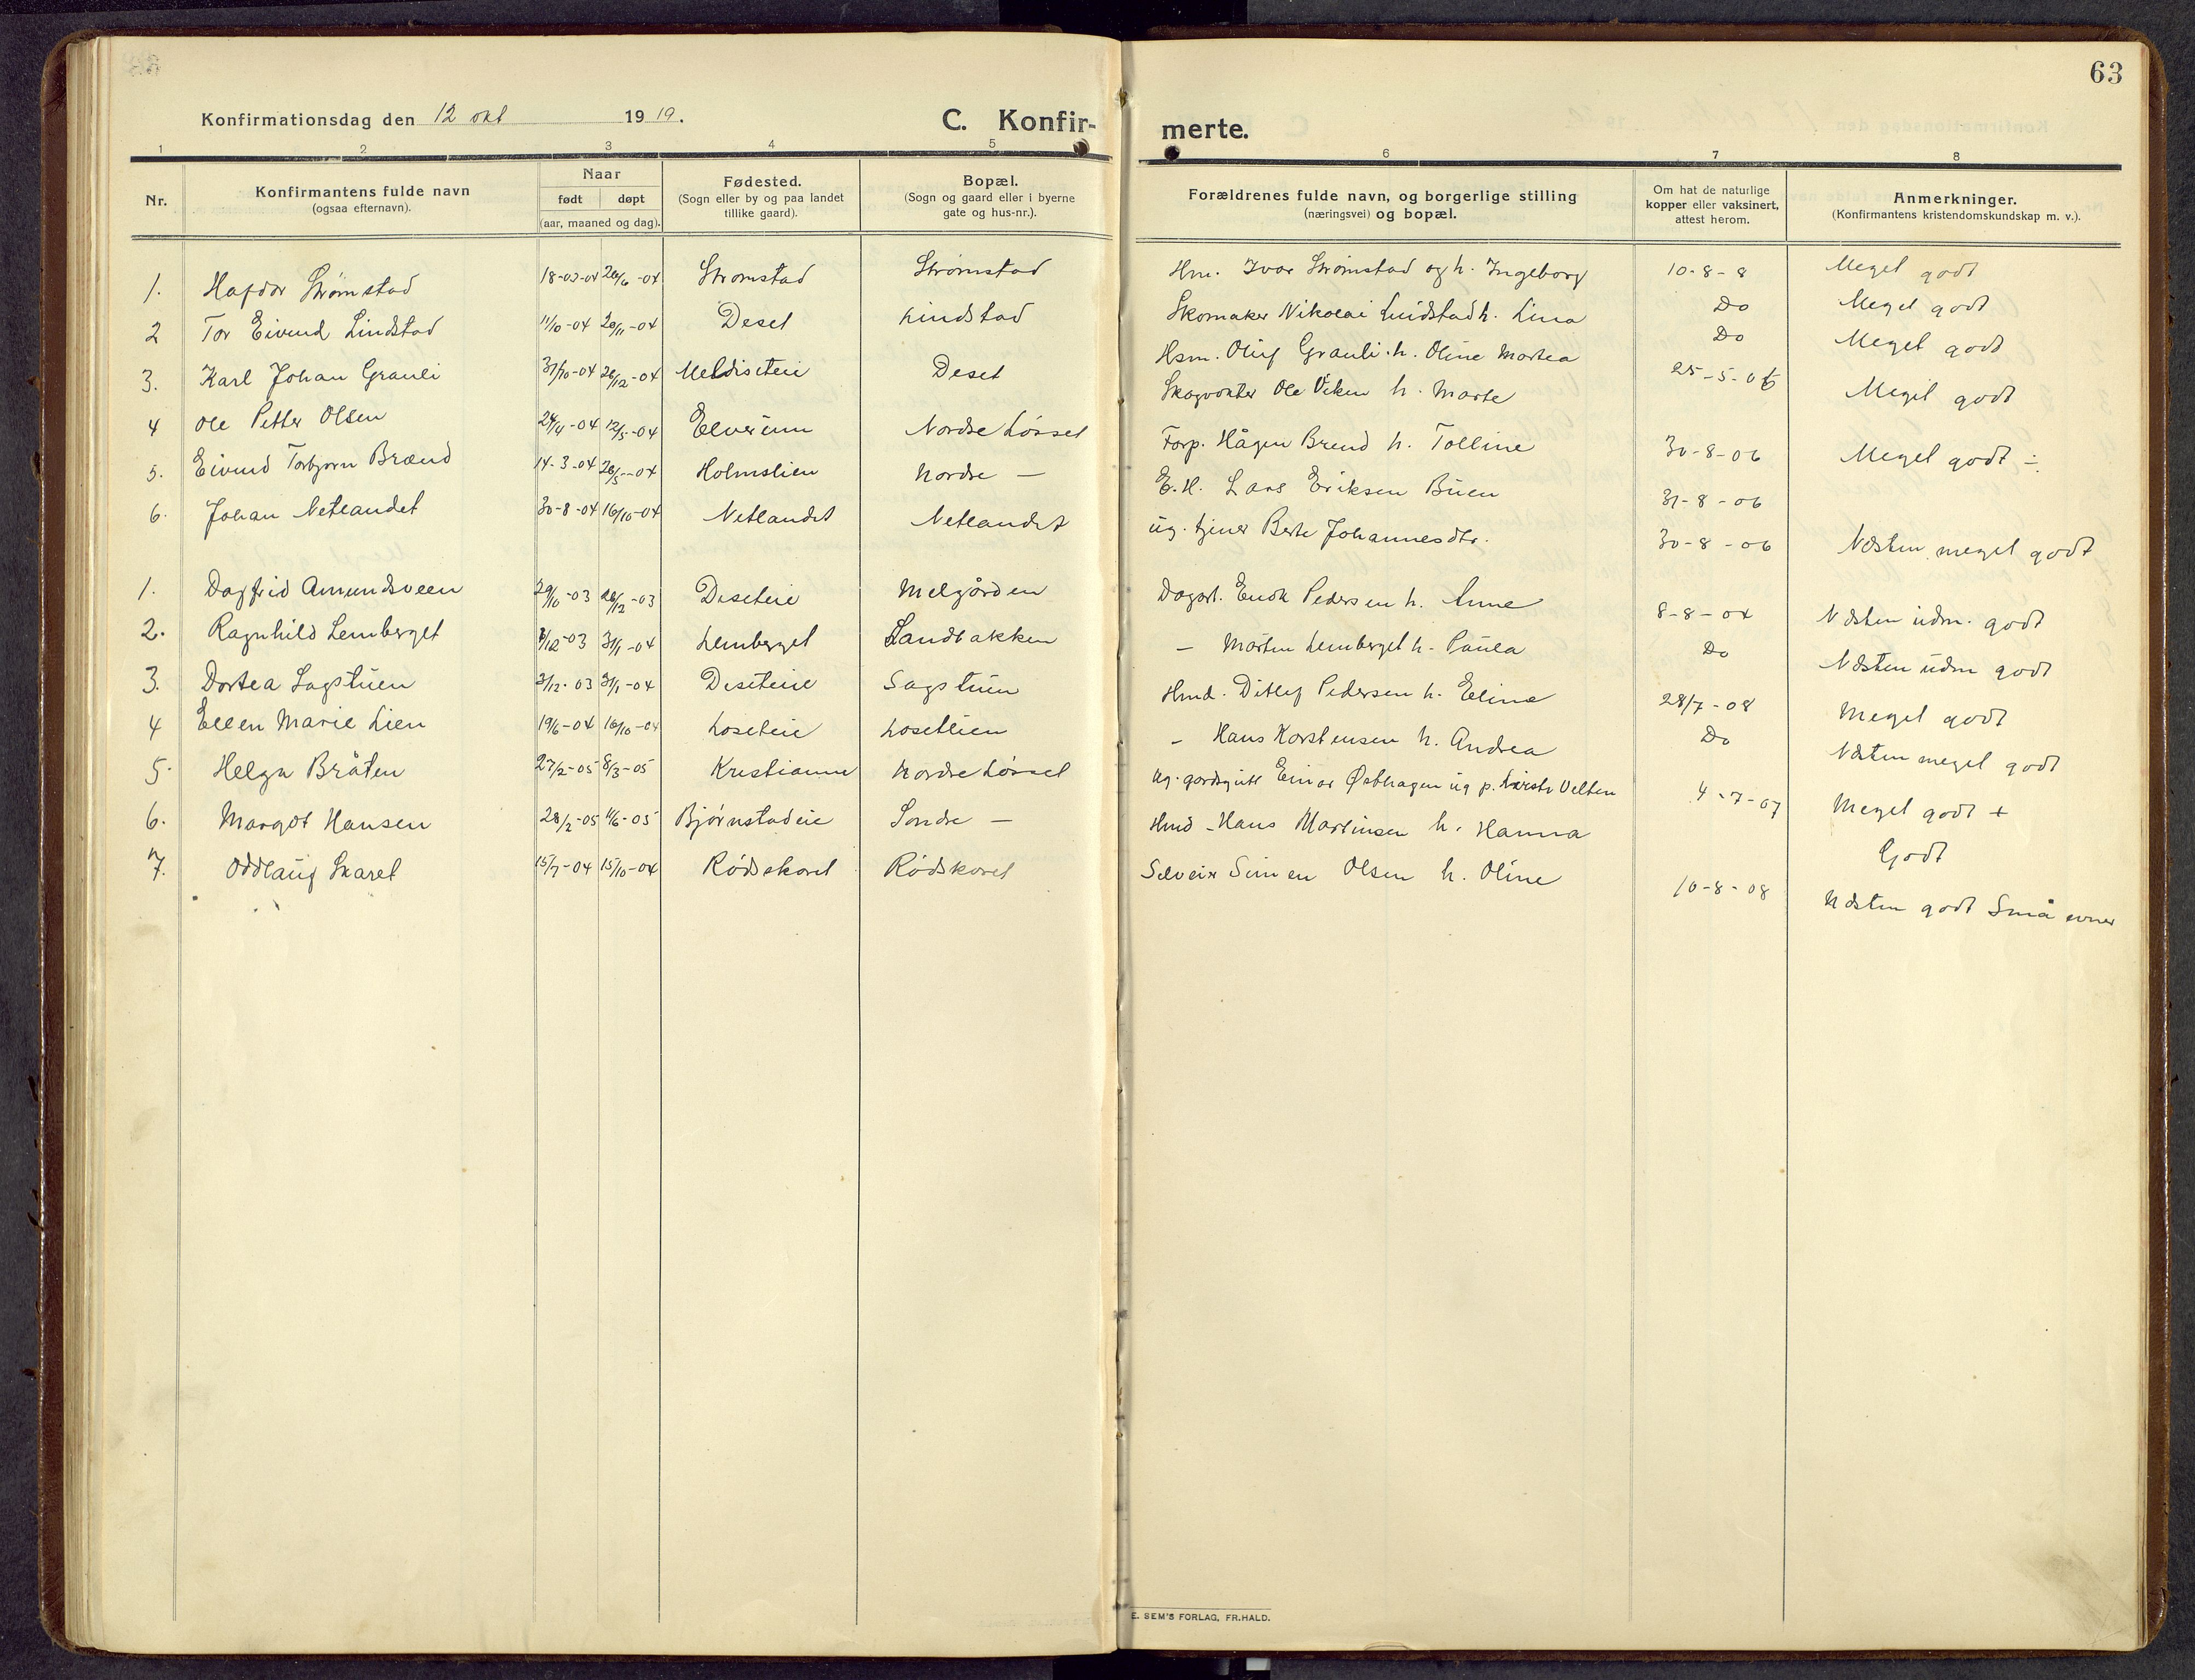 63
Konfirmationsdag den 12 okt 1919.
C. Konfir-
merte.
1 2 3 4 5 6 7 8
Nr.
Konfirmantens fulde navn
(ogsaa efternavn).
Naar
født døpt
(aar, maaned og dag).
Fødested.
(Sogn eller by og paa landet
tillike gaard).
Bopæl.
(Sogn og gaard eller i byerne
gate og hus-nr.).
Forældrenes fulde navn, og borgerlige stilling
(næringsvei) og bopæl.
Om hat de naturlige
kopper eller vaksinert,
attest herom.
Anmerkninger.
(Konfirmantens kristendomskundskap m. v.).
1. Hafdor Strømstad 18-03-04 26/6-04 Strømstad Strømstad Hm. Ivar Strømstad og h. Ingeborg 10-8-8 Meget godt
2 Tor Eivind Lindstad 11/10-04 20/11-04 Deset Lindstad Skomaker Nikolai Lindstad h. Lina Do Meget godt
3. Karl Johan Grauli 31/10-04 26/12-04 Deset Hsm. Oluf Grauli h. Oline Martea Do Meget godt
4 Ole Petter Olsen 24/4-04 12/5-04 Elverum Nordre Løsset Skogvokter Ole Viken h. Marte 25-5-06 Meget godt
5. Eivind Torbjørn Brænd 14-3-04 26/5-04 Holmslien Nordre — Forp. Hågen Brend h. Tolline 30-8-06 Meget godt ÷
6. Johan Netlandet 30-8-04 16/10-04 Netlandet Netlandet E.H. Lars Eriksen Buen 31-8-06
ug. tjener Berte Johannesdtr. 30-8-06 Næsten meget godt
1. Dagfrid Amundsveen 29/10-03 26/12-03 Deseteie Melgården Dagarb. Enok Pedersen h. Anne 8-8-04 Næsten udm. godt
2. Ragnhild Lemberget /12-03 31/1-04 Lemberget Sandbakken — Morten Lemberget h. Paula Do Næsten udm godt
3. Dortea Sagstuen 3/12-03 31/1-04 Deseteie Sagstuen Hmd. Ditlef Pedersen h. Eline 28/7-08 Meget godt
4 Ellen Marie Lien 19/6-04 16/10-04 Loseteie Losetlien — Hans Karstensen h. Andrea Do Næsten meget godt
5. Helga Bråten 27/2-05 8/3-05 Kristiania Nordre Løsset Ug. gardsgutt Einar Østhagen ug p. Velten 4-7-07 Meget godt +
6. Margot Hansen 28/2-05 11/6-05 Bjørnstadeie Søndre — Hmd — Hans Martinsen h. Hanna Godt
7. Oddlaug Skaret 15/7-04 15/10-04 Rødskoret Rødskoret Selveier Simen Olsen h. Oline 10-8-08 Næsten godt Små evner
E. SEM'S FORLAG, FR.HALD.